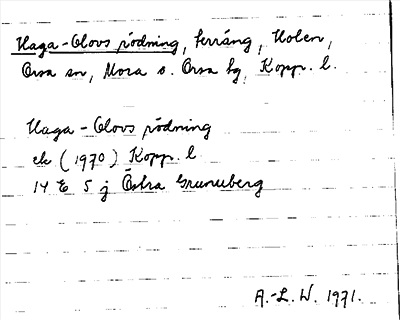 Haga-Olovs rödning, terräng, Holen,
Orsa sn, Mora o. Orsa tg, Kopp. l.
Haga-Olovs rödning
ek (1970) Kopp. l
14 E 5 j Östra Grunuberg
A.-L. W. 1971.